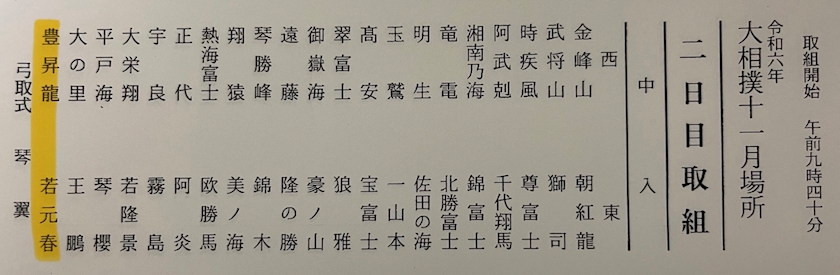 取組開始 午前九時四十分
令和六年
大相撲十一月場所
二日目取組
中入
西 東
金峰山 朝紅龍
武将山 獅司
時疾風 尊富士
阿武剋 千代翔馬
湘南乃海 錦富士
竜電 北勝富士
明生 佐田の海
玉鷲 一山本
髙安 宝富士
翠富士 狼雅
御嶽海 豪ノ山
遠藤 隆の勝
琴勝峰 錦木
翔猿 美ノ海
熱海富士 欧勝馬
正代 阿炎
宇良 霧島
大栄翔 若隆景
平戸海 琴櫻
大の里 王鵬
豊昇龍 若元春
弓取式 琴翼